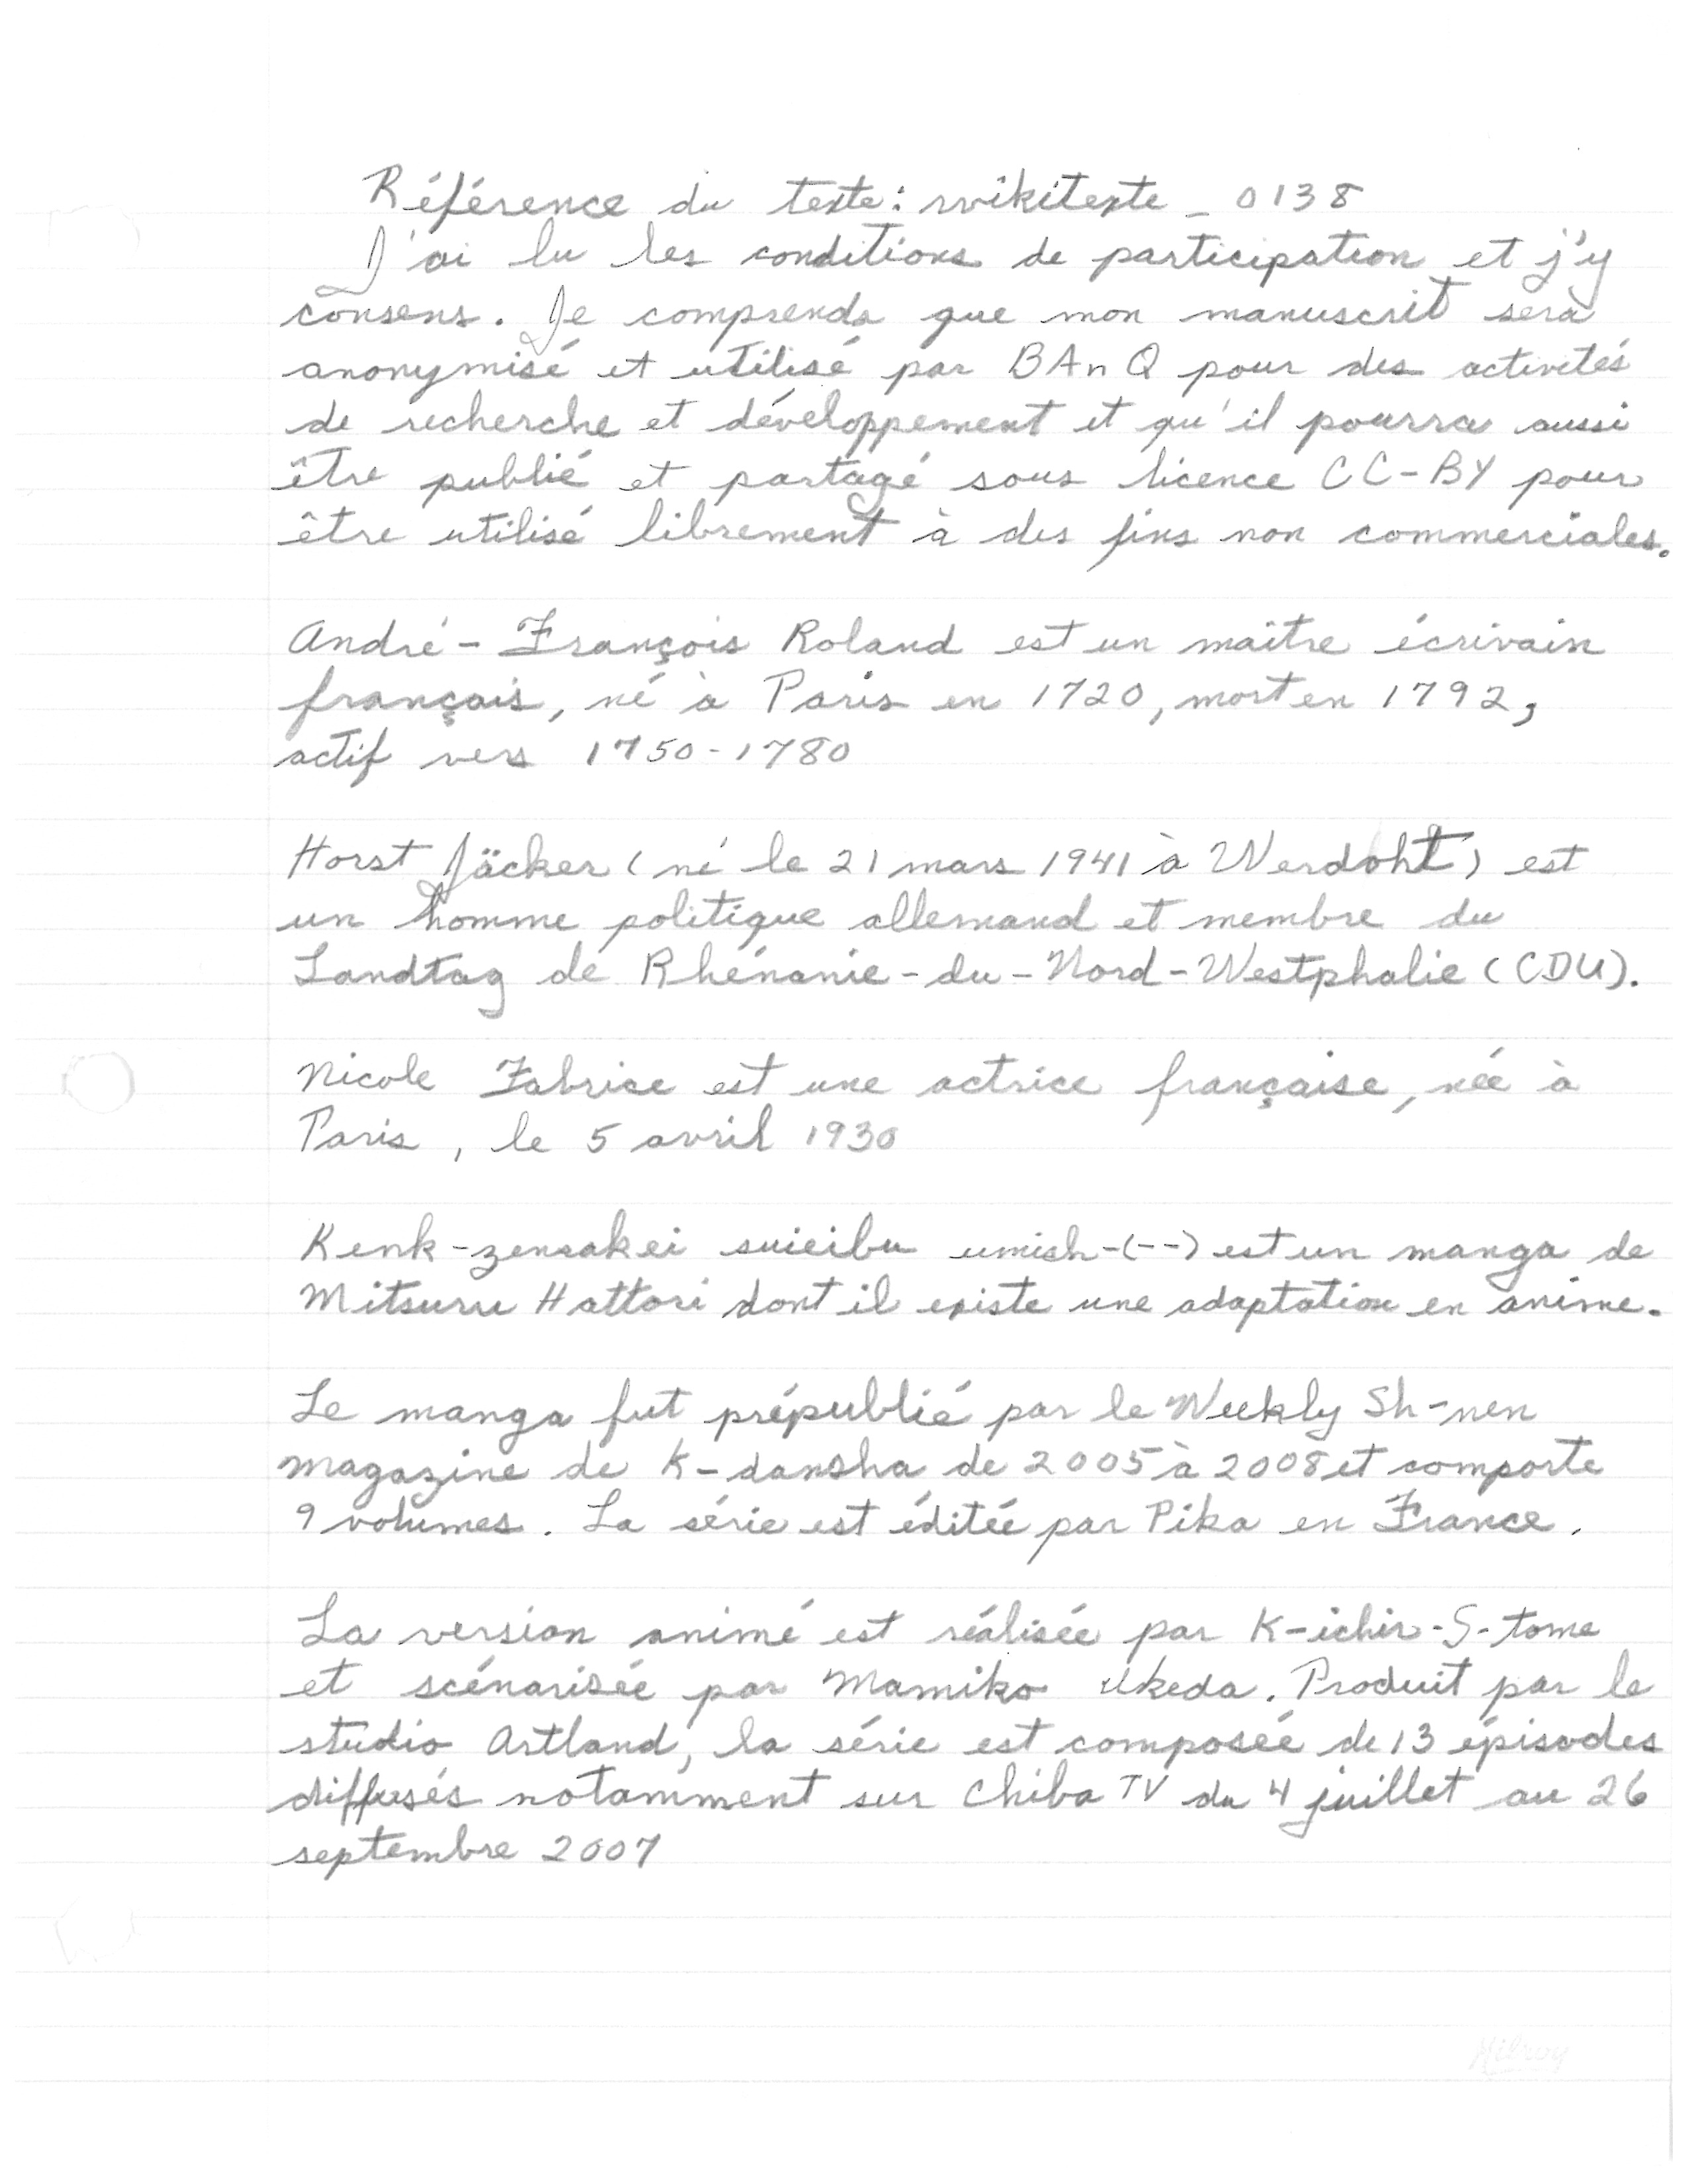 Référence du texte : wikitexte _ 0138
J'ai lu les conditions de participation et j'y
consens. Je comprends que mon manuscrit sera
anonymisé et utilisé par BAnQ pour des activités
de recherche et développement et qu'il pourra aussi
être publié et partagé sous licence CC-BY pour
être utilisé librement à des fins non commerciales.
André-François Roland est un maître écrivain
français, né à Paris en 1720, mort en 1792,
actif vers 1750-1780
Horst Jäcker (né le 21 mars 1941 à Werdoht) est
un homme politique allemand et membre du
Landtag de Rhénanie-du-Nord-Westphalie (CDU).
Nicole Fabrice est une actrice française, née à
Paris, le 5 avril 1930
Kenk-zensakei suieibu umish-(--) est un manga de
Mitsuru Hattori dont il existe une adaptation en anime.
Le manga fut prépublié par le Weekly Sh-nen
magazine de K-dansha de 2005 à 2008 et comporte
9 volumes. La série est éditée par Pika en France.
La version animé est réalisée par K-ichir-S-tome
et scénarisée par Mamiko Ikeda. Produit par le
studio Artland, la série est composée de 13 épisodes
diffusés notamment sur Chiba TV du 4 juillet au 26
septembre 2007
Hilroy